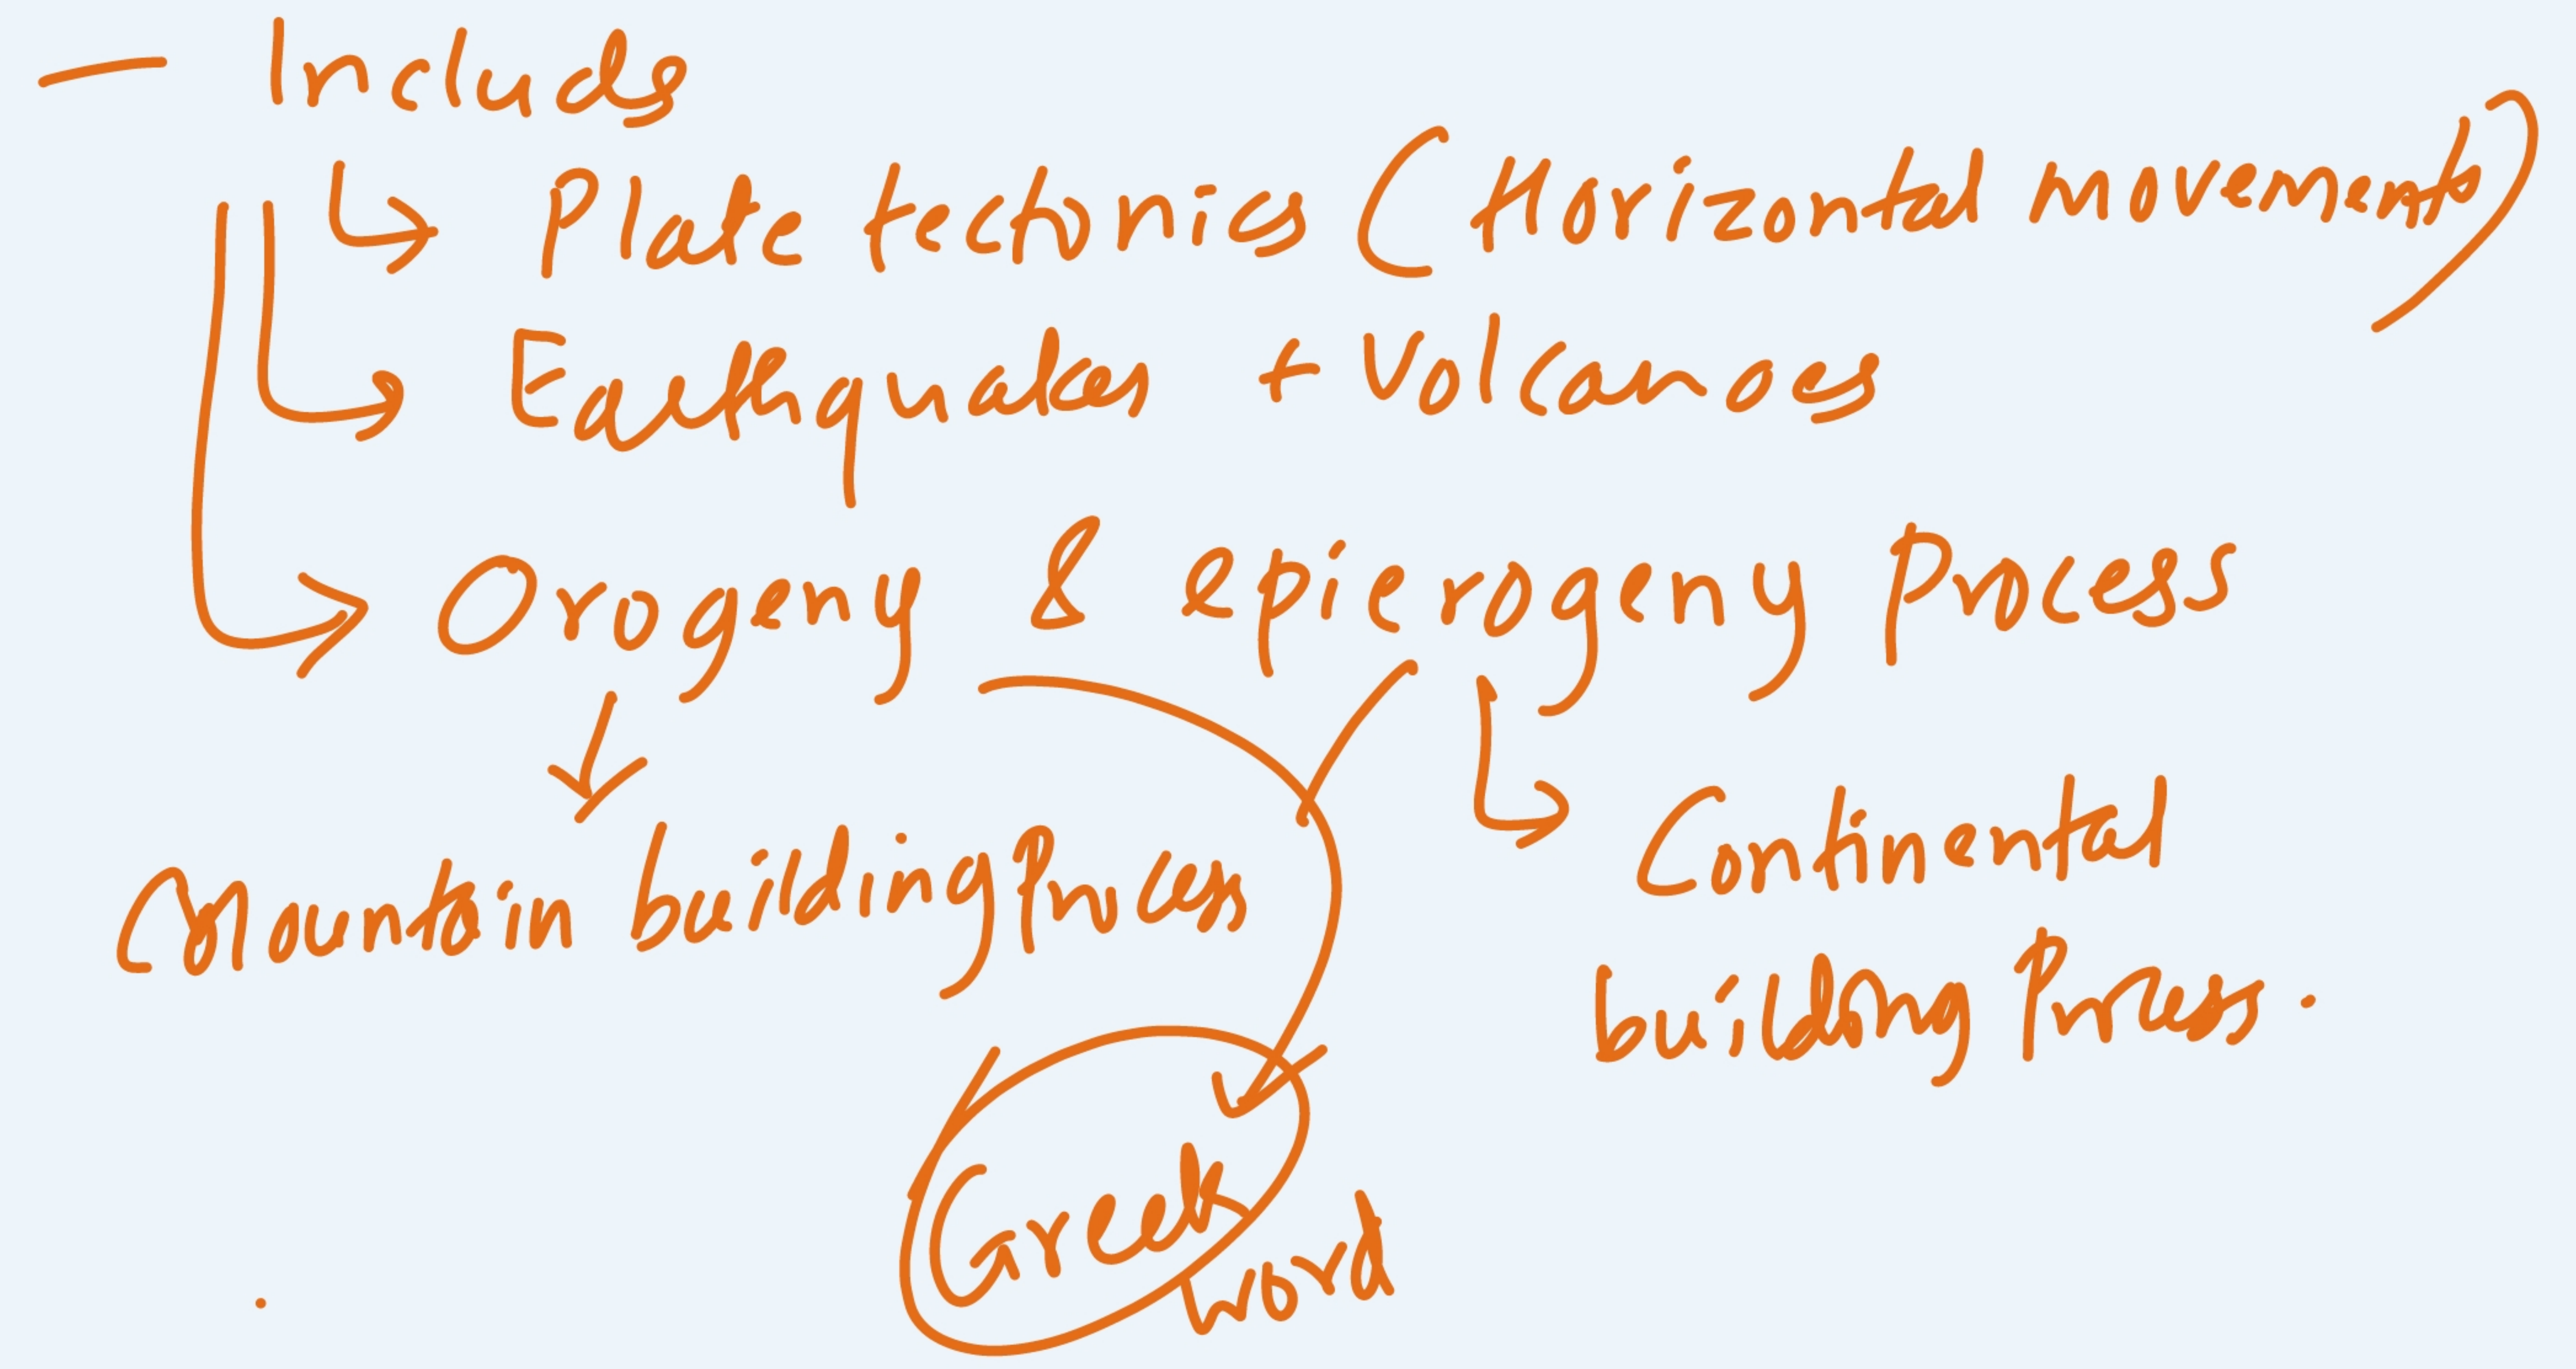 — Includs
Plate tectonics (Horizontal movements)
Earthquakes + Volcanoes
Orogeny & epierogeny Process
Mountain building Process
Continental
building Process.
Greek
word